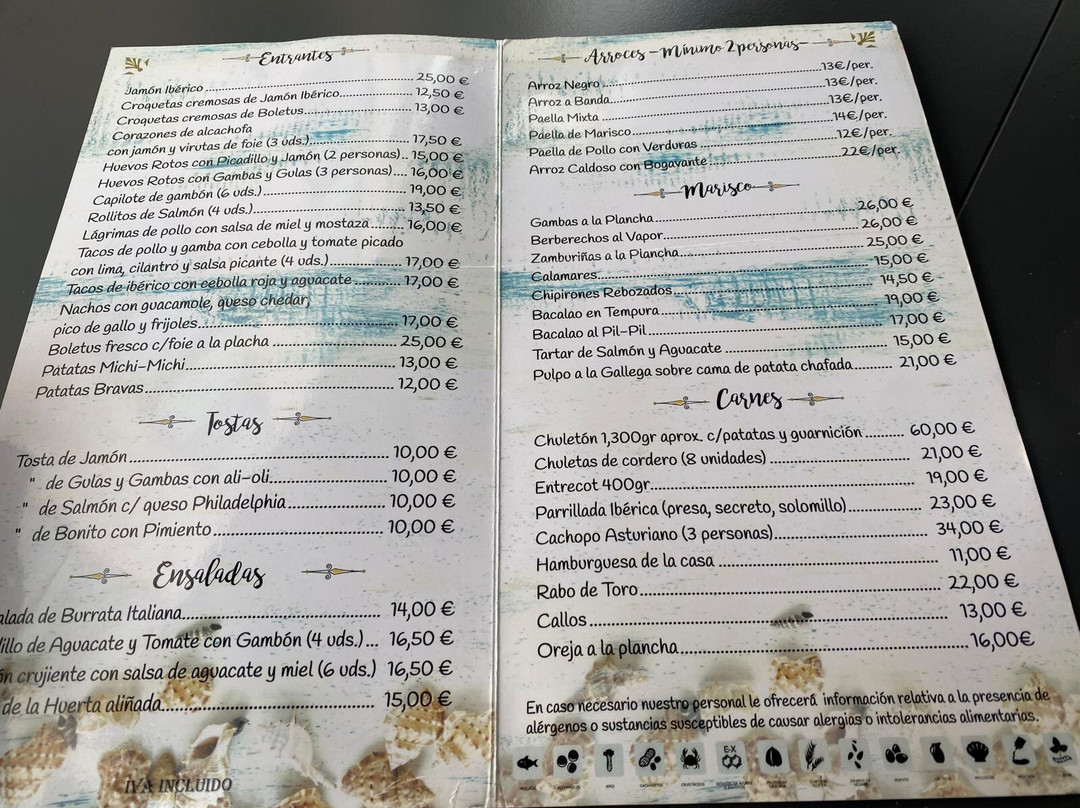 Entrantes
Jamón Ibérico 25,00 €
Croquetas cremosas de Jamón Ibérico 12,50 €
Croquetas cremosas de Boletus 13,00 €
Corazones de alcachofa
con jamón y virutas de foie (3 uds.) 17,50 €
Huevos Rotos con Picadillo y Jamón (2 personas) 15,00 €
Huevos Rotos con Gambas y Gulas (3 personas) 16,00 €
Capilote de gambón (6 uds.) 19,00 €
Rollitos de Salmón (4 uds.) 13,50 €
Lágrimas de pollo con salsa de miel y mostaza 16,00 €
Tacos de pollo y gamba con cebolla y tomate picado
con lima, cilantro y salsa picante (4 uds.) 17,00 €
Tacos de ibérico con cebolla roja y aguacate 17,00 €
Nachos con guacamole, queso chedar,
pico de gallo y frijoles 17,00 €
Boletus fresco c/foie a la placha 25,00 €
Patatas Michi-Michi 13,00 €
Patatas Bravas 12,00 €
Tostas
Tosta de Jamón 10,00 €
" de Gulas y Gambas con ali-oli 10,00 €
" de Salmón c/ queso Philadelphia 10,00 €
" de Bonito con Pimiento 10,00 €
Ensaladas
alada de Burrata Italiana 14,00 €
illo de Aguacate y Tomate con Gambón (4 uds.) 16,50 €
ón crujiente con salsa de aguacate y miel (6 uds.) 16,50 €
de la Huerta aliñada 15,00 €
IVA INCLUIDO
Arroces - Mínimo 2 personas
Arroz Negro 13€/per.
Arroz a Banda 13€/per.
Paella Mixta 13€/per.
Paella de Marisco 14€/per.
Paella de Pollo con Verduras 12€/per.
Arroz Caldoso con Bogavante 22€/per.
Marisco
Gambas a la Plancha 26,00 €
Berberechos al Vapor 26,00 €
Zamburiñas a la Plancha 25,00 €
Calamares 15,00 €
Chipirones Rebozados 14,50 €
Bacalao en Tempura 19,00 €
Bacalao al Pil-Pil 17,00 €
Tartar de Salmón y Aguacate 15,00 €
Pulpo a la Gallega sobre cama de patata chafada 21,00 €
Carnes
Chuletón 1,300gr aprox. c/patatas y guarnición 60,00 €
Chuletas de cordero (8 unidades) 21,00 €
Entrecot 400gr. 19,00 €
Parrillada Ibérica (presa, secreto, solomillo) 23,00 €
Cachopo Asturiano (3 personas) 34,00 €
Hamburguesa de la casa 11,00 €
Rabo de Toro 22,00 €
Callos 13,00 €
Oreja a la plancha 16,00€
En caso necesario nuestro personal le ofrecerá información relativa a la presencia de
alérgenos o sustancias susceptibles de causar alergias o intolerancias alimentarias.
E-X